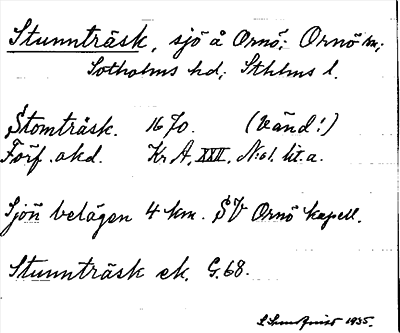 Stunnträsk, sjö å Ornö; Ornö sn;
Sotholms hd; Sthlms l.
Stomträsk. 1670. (Vänd!)
Förf. akd. Kr A, XXII, N:o 1. lit. a.
Sjön belägen 4 km. SV Ornö kapell.
Stunnträsk ek. G.68.
S. Lundquist 1935.